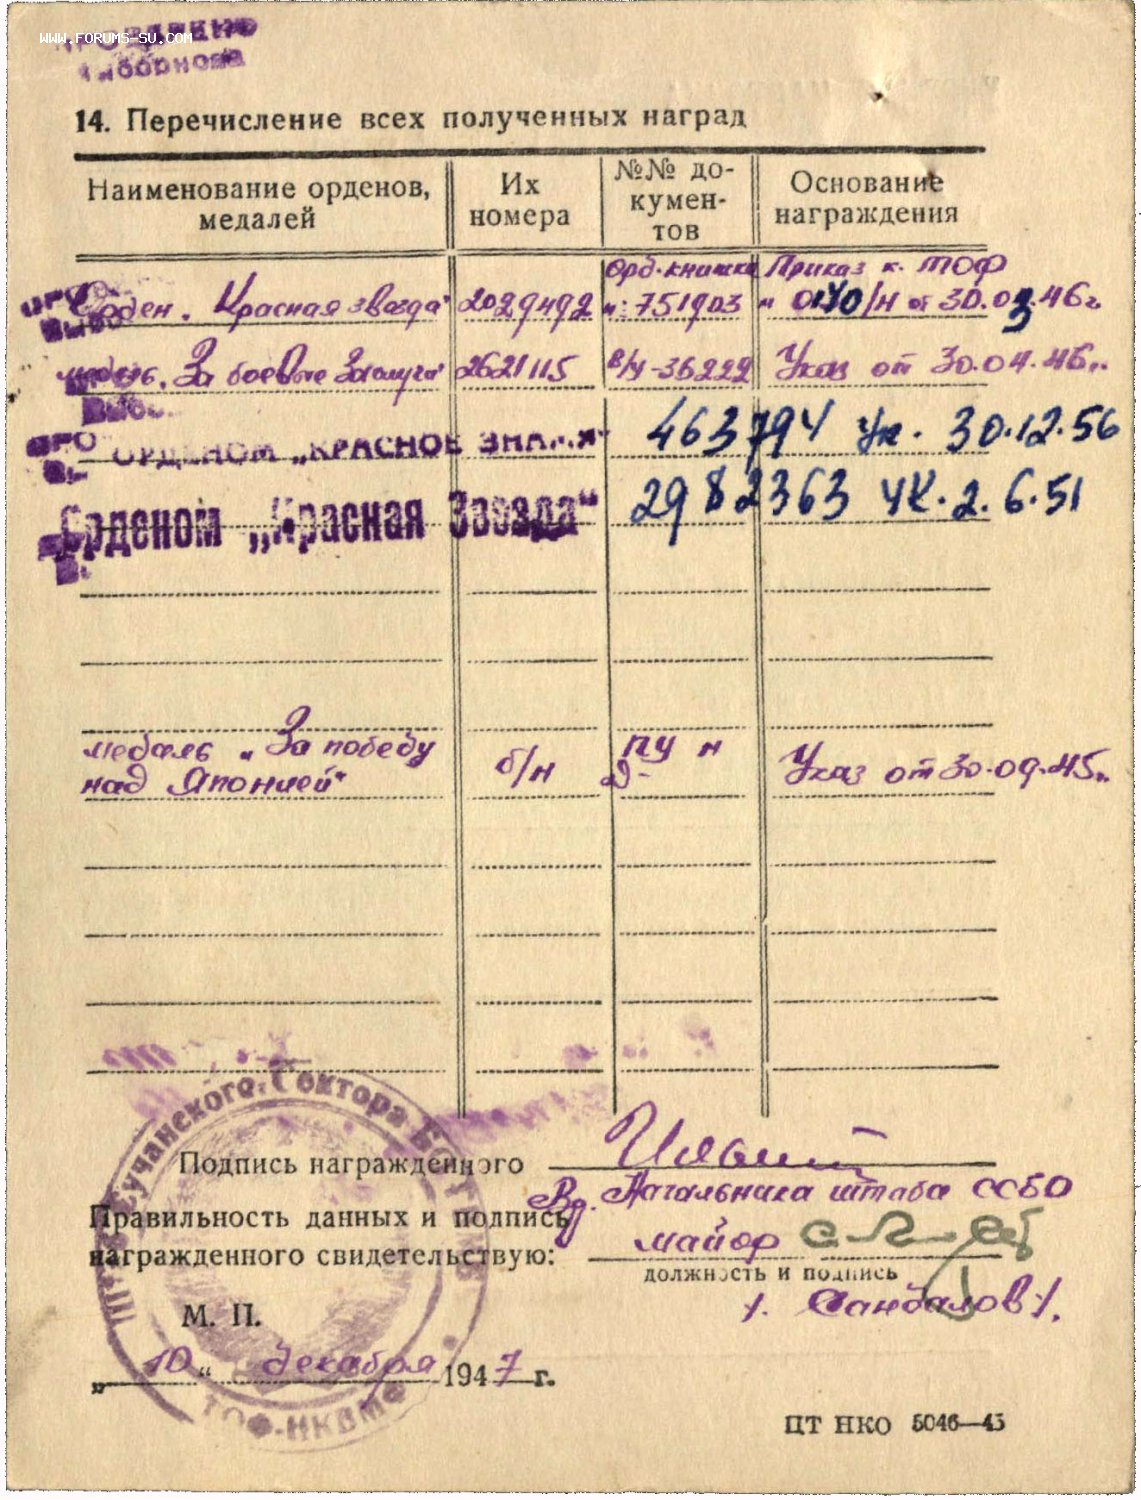 WWW.FORUMS-SU.COM
14. Перечисление всех полученных наград
Наименование орденов, медалей
Их номера
№№ документов
Основание награждения
Орден „Красная звезда" 2029492 Орд. книжка №: 751903 Приказ к. ТОФ № 0140/н от 30.03.46г
медаль „За боевые Заслуги" 2621115 в/у-36222 Указ от 30.04.46г.
ОРДЕНОМ „КРАСНОЕ ЗНАМЯ" 463794 Ук. 30.12.56
Орденом „Красная Звезда" 2982363 УК. 2.6.51
медаль „За победу
над Японией" б/н Указ от 30.09.45г.
Подпись награжденного
Вр. Начальника штаба ССБО
Правильность данных и подпись
награжденного свидетельствую: майор
должность и подпись
/. Сандалов /.
М. П.
„10" декабря 1947 г.
Сучанского Сектора
ТОФ-НКВМФ
ЦТ НКО 5046—45